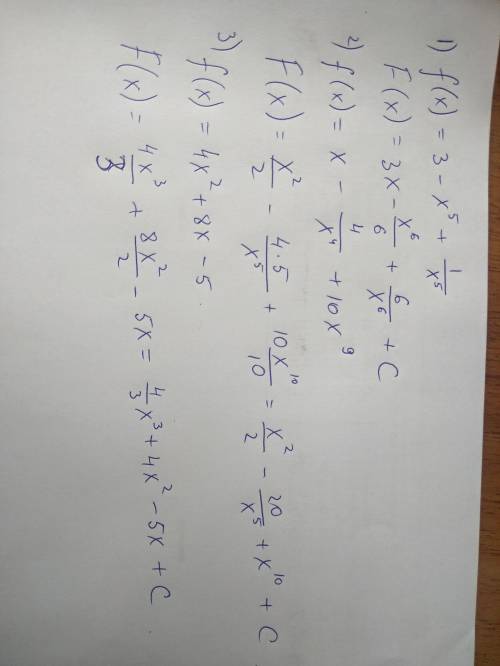 1) f(x) = 3 - x⁵ + 1/x⁵
F(x) = 3x - x⁶/6 + 6/x⁶ + C
2) f(x) = x - 4/x⁴ + 10x⁹
F(x) = x²/2 - 4·5/x⁵ + 10x¹⁰/10 = x²/2 - 20/x⁵ + x¹⁰ + C
3) f(x) = 4x² + 8x - 5
F(x) = 4x³/3 + 8x²/2 - 5x = 4/3 x³ + 4x² - 5x + C